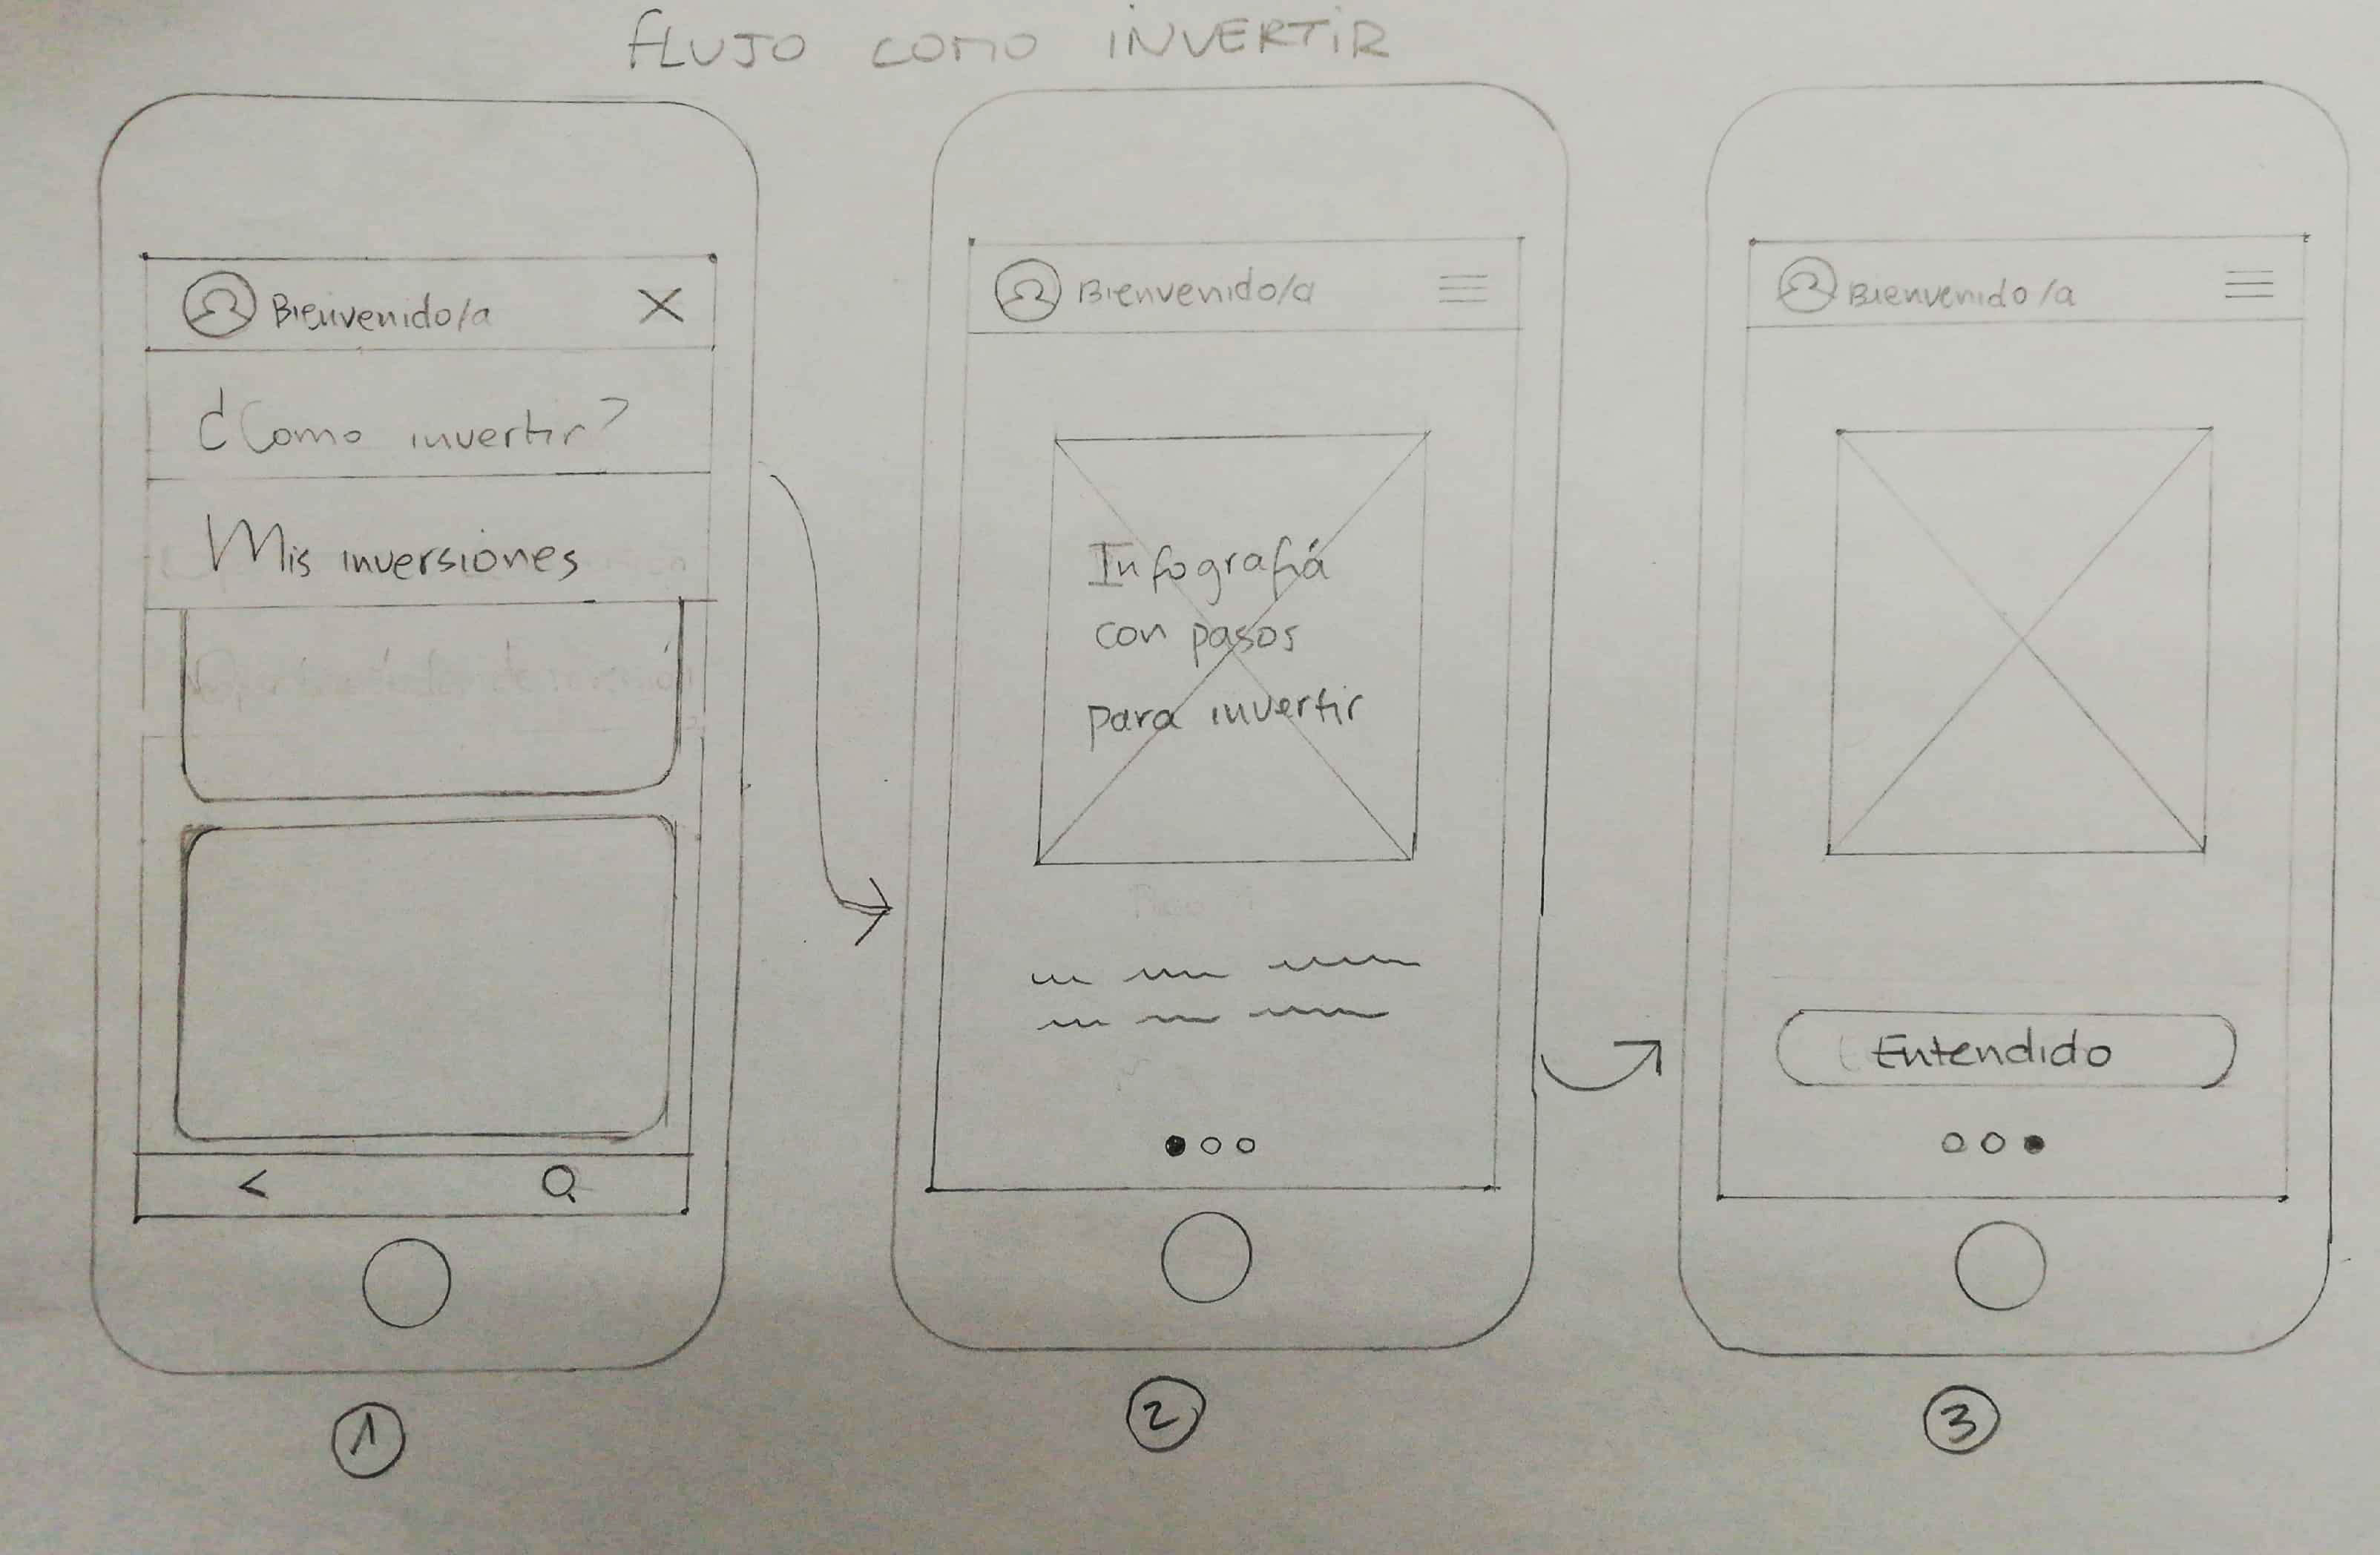 FLUJO COMO INVERTIR
Bienvenido/a
¿Como invertir?
Mis inversiones
1
Bienvenido/a
Infografiá
con pasos
para invertir
2
Bienvenido/a
Entendido
3